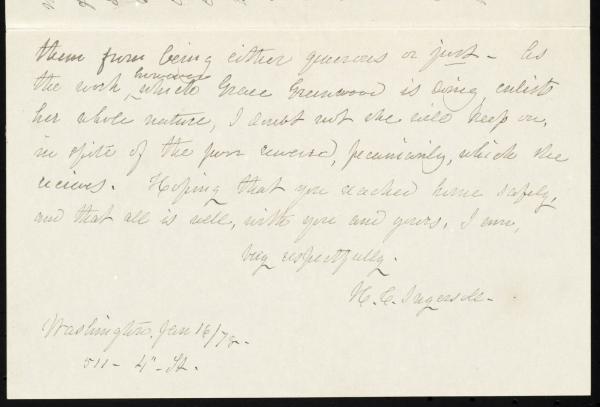 them from being either generous or just - As
the work, however which Grace Greenwood is doing enlists
her whole nature, I doubt not she will keep on,
in spite of the poor reward, pecuniarily, which she
recieves. Hoping that you reached home safely,
and that all is well, with you and yours, I am,
very respectfully.
H. C. Ingersoll-
Washington, Jan 16/72-
511- 4th St.